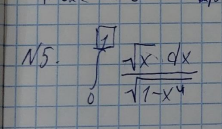 N5. ∫₀¹ √x dx / √(1-x⁴)